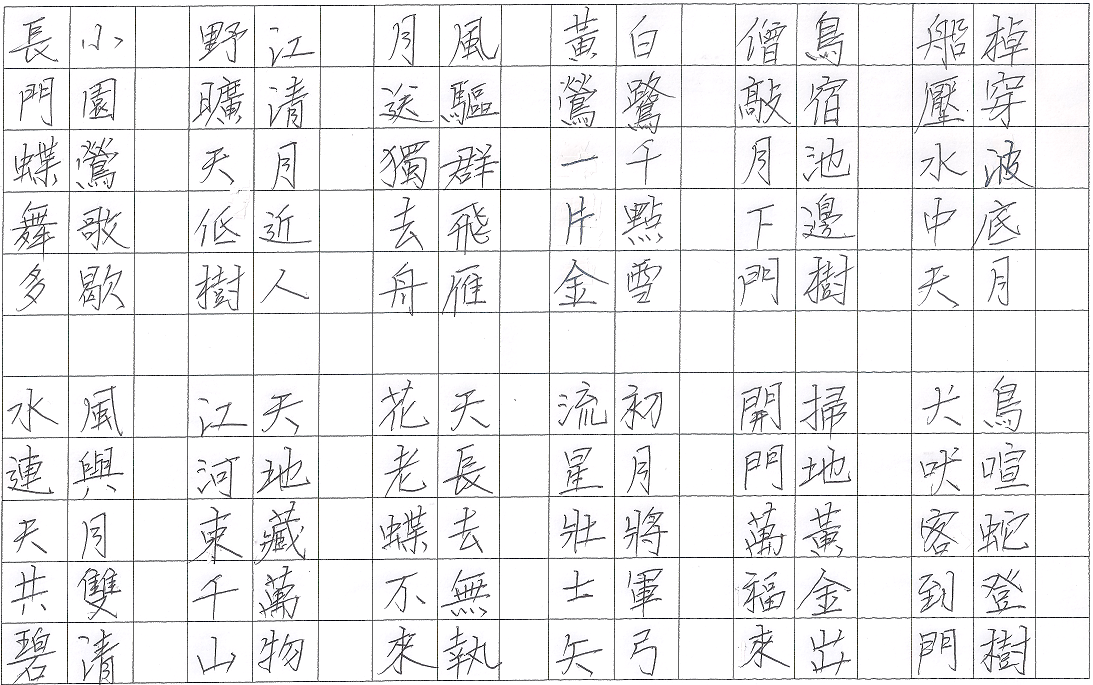 棹穿波底月
船壓水中天
鳥宿池邊樹
僧敲月下門
白鷺千點雪
黃鶯一片金
風驅群飛雁
月送獨去舟
江清月近人
野曠天低樹
小園鶯歌歇
長門蝶舞多
鳥喧蛇登樹
犬吠客到門
掃地黃金出
開門萬福來
初月將軍弓
流星壯士矢
天長去無執
花老蝶不來
天地藏萬物
江河東千山
風與月雙清
水連天共碧